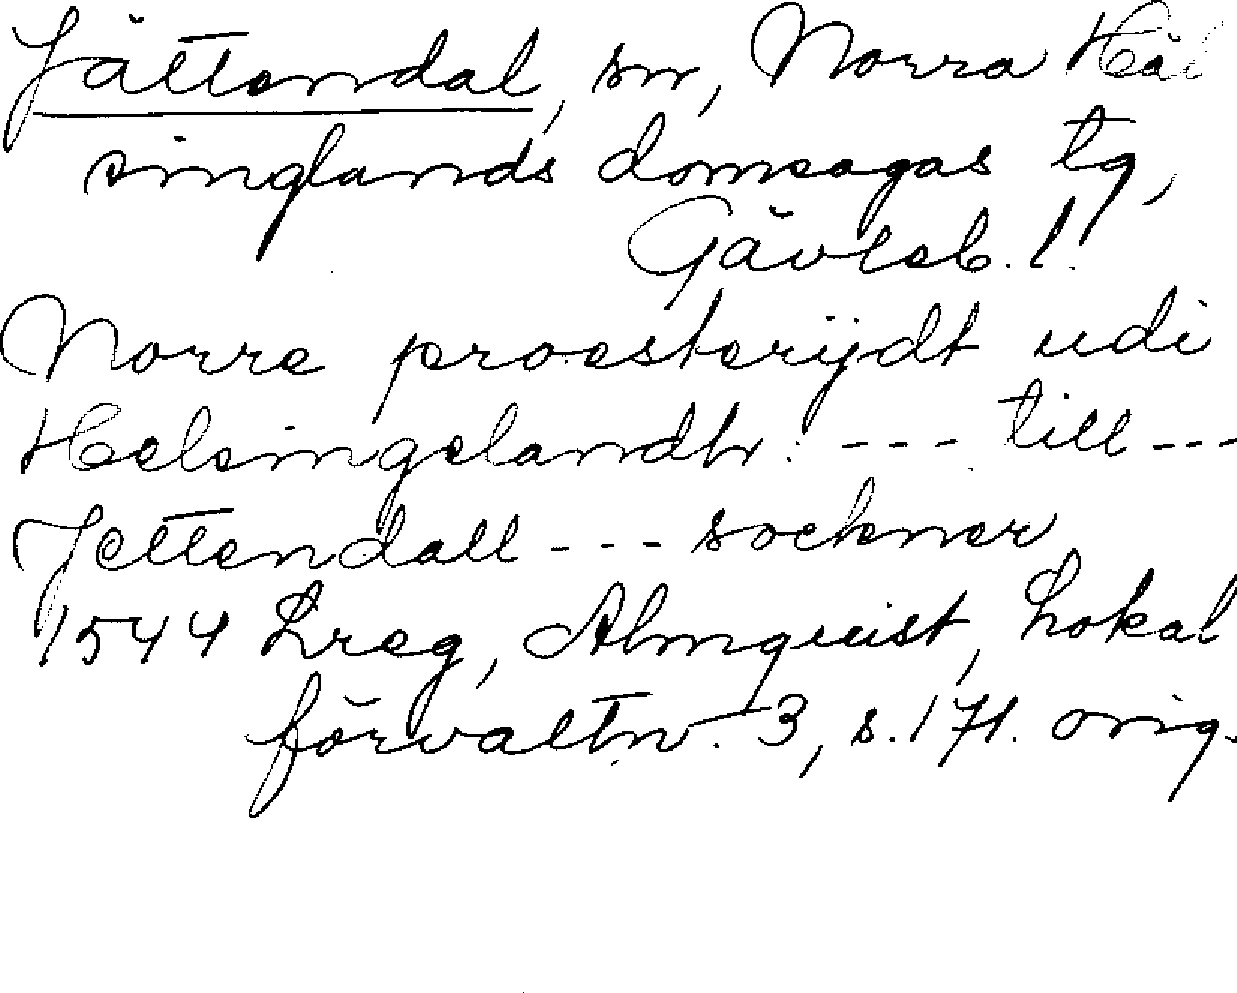 Jättendal, sn, Norra Häl
singlands domsagas tg,
Gävleb. l.
Norre proesterijdt udi
Helsingelandh: --- till ---
Jettendall --- sockner
1544 Lreg, Almquist, Lokal
förvaltn. 3, s. 171. orig.